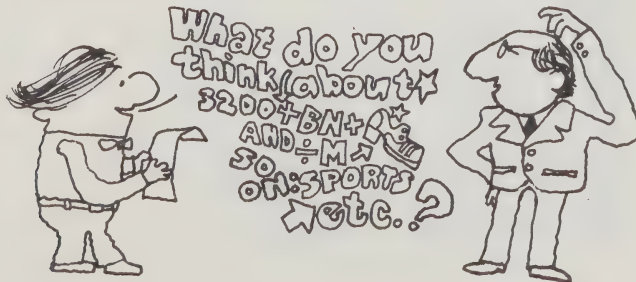 What do you
think about
3200+BN+
AND÷M
SO
ON:SPORTS
etc.?